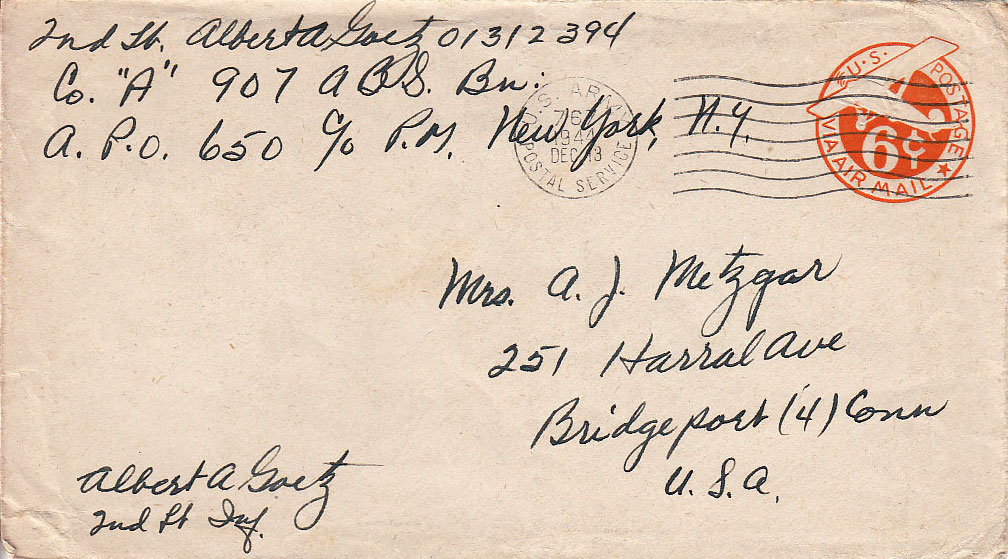 2nd Lt. Albert A Goetz 01312394
Co. "A" 907 A B S. Bn:
A. P. O. 650 c/o P. M. New York, N. Y.
U. S. ARMY
POSTAL SERVICE
1944
DEC 13
U.S. POSTAGE
VIA AIR MAIL
6¢
Mrs. A. J. Metzgar
251 Harral Ave
Bridgeport (4) Conn
U. S. A.
Albert A Goetz
2nd Lt Inf.